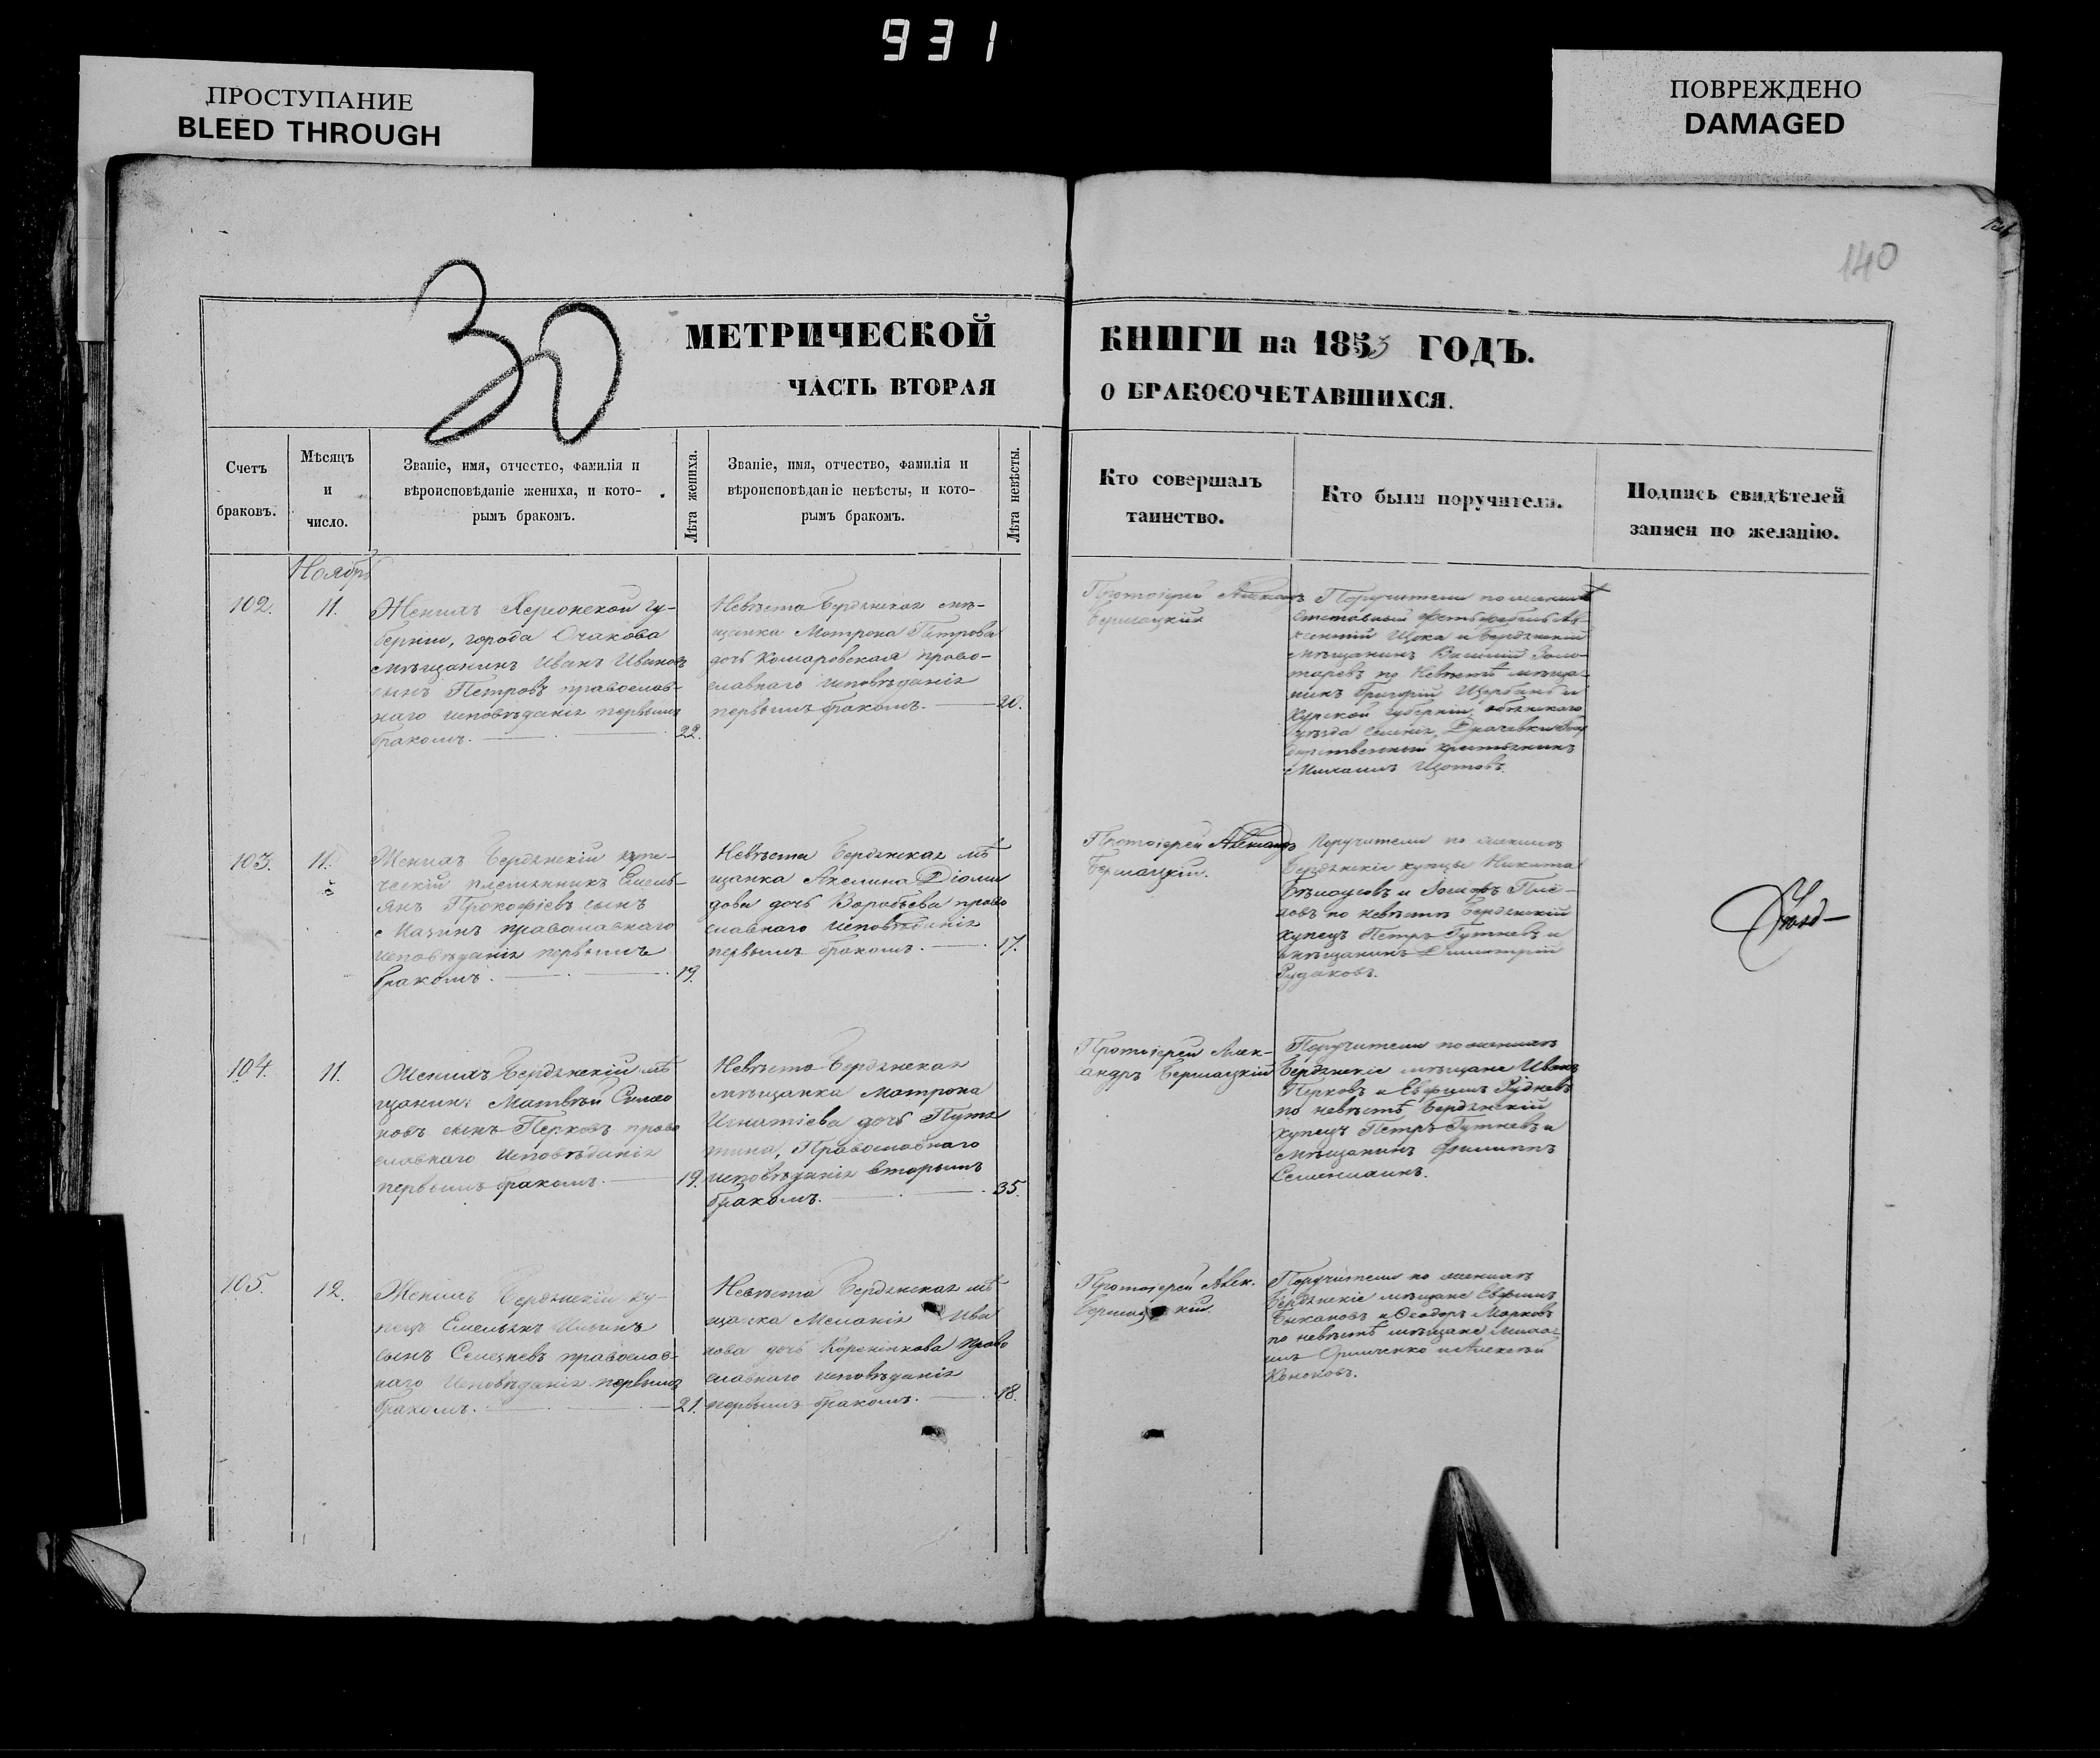 931
ПРОСТУПАНИЕ
BLEED THROUGH
ПОВРЕЖДЕНО
DAMAGED
140
30
МЕТРИЧЕСКОЙ
КНИГИ на 1853 ГОДЪ.
ЧАСТЬ ВТОРАЯ
О БРАКОСОЧЕТАВШИХСЯ.
Счетъ
браковъ.
Мѣсяцъ
и
число.
Званіе, имя, отчество, фамилія и
вѣроисповѣданіе жениха, и кото-
рымъ бракомъ.
Лѣта жениха.
Званіе, имя, отчество, фамилія и
вѣроисповѣданіе невѣсты, и кото-
рымъ бракомъ.
Лѣта невѣсты.
Кто совершалъ
таинство.
Кто были поручители.
Подпись свидѣтелей
записи по желанію.
Ноябрь
102.
11.
Женихъ Херсонской гу-
берніи, города Очакова
мѣщанинъ Иванъ Ивановъ
сынъ Петровъ православ-
наго исповѣданія первымъ
бракомъ.
22.
Невѣста Бердянская мѣ-
щанка Матрона Петрова
дочь Комаровская право-
славнаго исповѣданія
первымъ бракомъ.
20.
Протоіерей Александръ
Поручители по женихѣ
отставный фельдфебель
Щока и Бердянскій
мѣщанинъ Василій Золо-
таревъ по невѣстѣ мѣща-
нинъ Григорій Щербань и
Курской губерніи Обоянскаго
уѣзда
крестьянинъ
Михаилъ
103.
11.
Женихъ Бердянскій купе-
ческій племянникъ Емель-
янъ Прокофіевъ сынъ
Мазинъ православнаго
исповѣданія первымъ
бракомъ.
19.
Невѣста Бердянская мѣ
щанка Акилина Діоми
дова дочь Воробьева право
славнаго исповѣданія
первымъ бракомъ.
17.
Протоіерей Александръ
Поручители по женихѣ
Бердянскіе купцы Никита
Бѣлоусовъ и
по невѣстѣ Бердянскій
купецъ Петръ Гутневъ и
мѣщанинъ Димитрій
Рудаковъ.
104.
11.
Женихъ Бердянскій мѣ
щанинъ Матвѣй Симео
новъ сынъ Перковъ право
славнаго исповѣданія
первымъ бракомъ.
19.
Невѣста Бердянская
мѣщанка Матрона
Игнатіева дочь Путя
тина, Православнаго
исповѣданія вторымъ
бракомъ.
35.
Протоіерей Алек-
андръ
Поручители по женихѣ
Бердянскіе мѣщане Иванъ
Перковъ и Евфимъ Рудневъ
по невѣстѣ Бердянскій
купецъ Петръ Гутневъ и
мѣщанинъ Филиппъ
105.
12.
Женихъ Бердянскій ку-
пецъ Емельянъ Ильинъ
сынъ Селезневъ православ-
наго исповѣданія первымъ
бракомъ.
21.
Невѣста Бердянская мѣ
щанка Меланія Ива
нова дочь Коренюкова право
славнаго исповѣданія
первымъ бракомъ.
18.
Протоіерей Алек.
Поручители по женихѣ
Бердянскіе мѣщане Евфимъ
Быкановъ и Ѳеодоръ Марковъ
по невѣстѣ мѣщане Миха-
илъ и Алексѣй
Кононовъ.